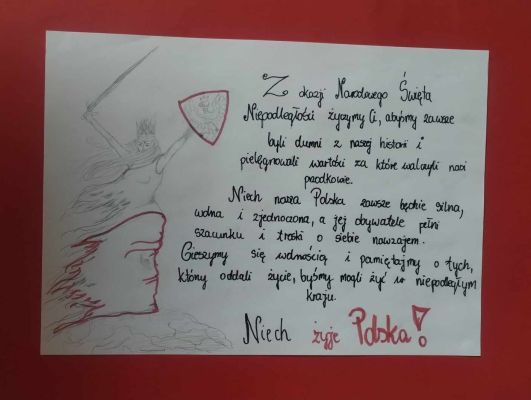 Z okazji Narodowego Święta
Niepodległości życzymy Ci, abyśmy zawsze
byli dumni z naszej historii i
pielęgnowali wartości za które walczyli nasi
przodkowie.
Niech nasza Polska zawsze będzie silna,
wolna i zjednoczona, a jej obywatele pełni
szacunku i troski o siebie nawzajem.
Cieszymy się wolnością i pamiętajmy o tych,
który oddali życie, byśmy mogli żyć w niepodległym
kraju.
Niech żyje Polska!